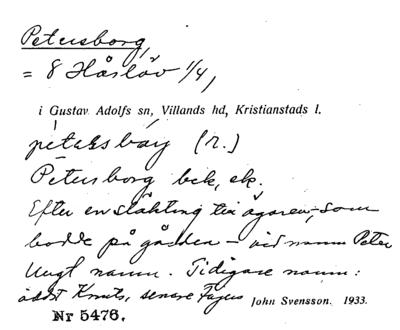 Petersborg,
= 8 Håslöv 1/4,
i Gustav Adolfs sn, Villands hd, Kristianstads l.
(n.)
Petersborg bek, ek.
Efter en släkting till ägaren, som
bodde på gården – vid namn Peter
Ungt namn. Tidigare namn:
äldst Knuts, senare Fajers John Svensson. 1933.
Nr 5476.